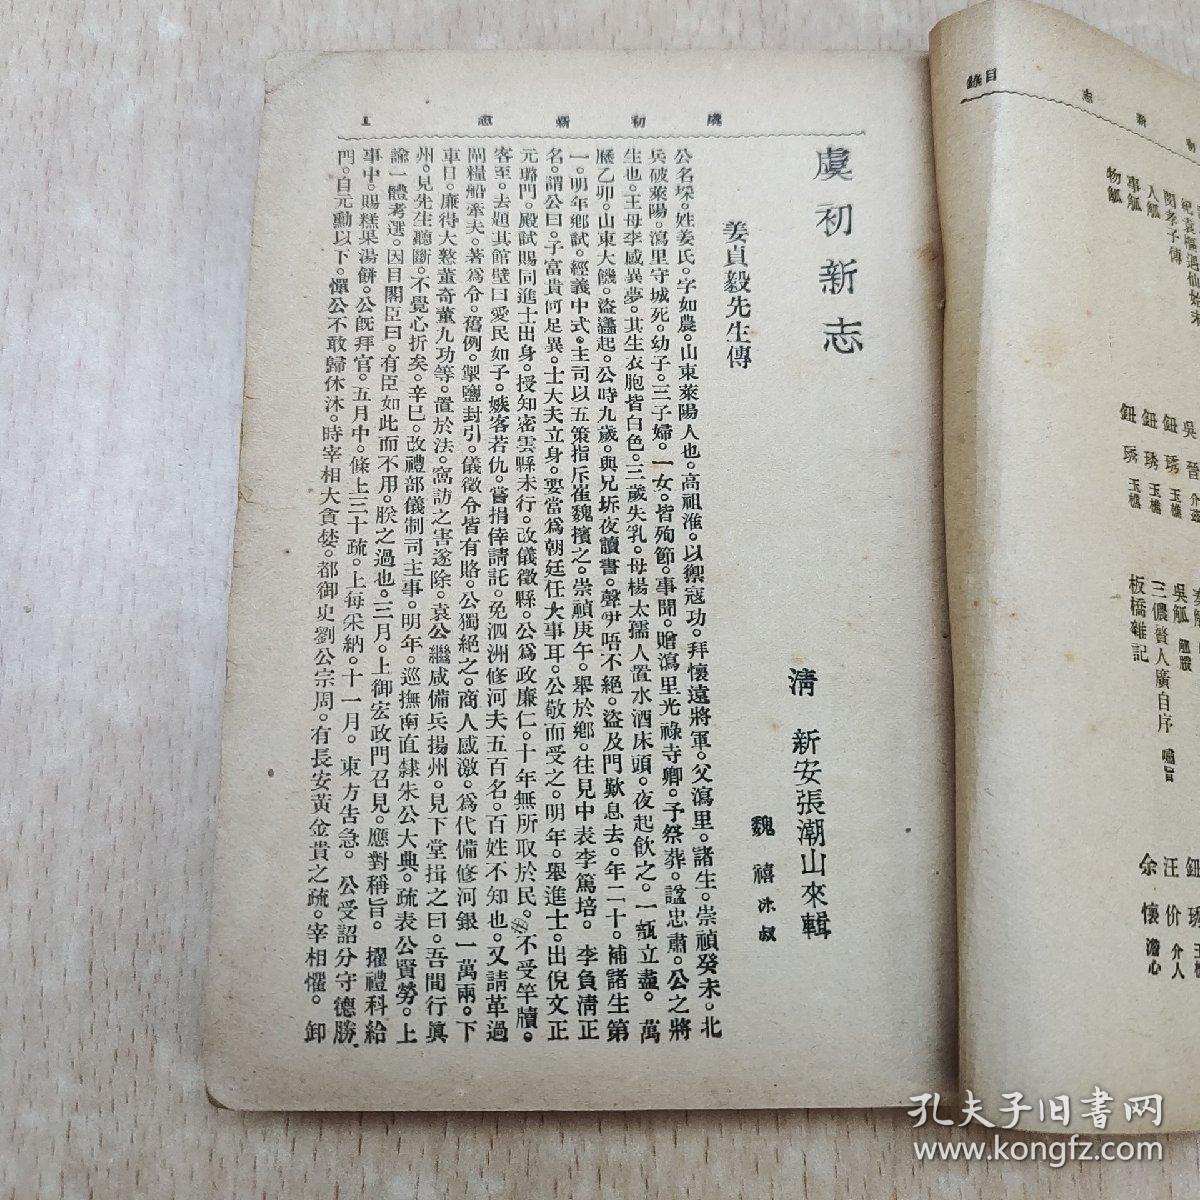 虞初新志 1
虞初新志
清 新安張潮山來輯
姜貞毅先生傳
魏禧冰叔
公名埰。姓姜氏。字如農。山東萊陽人也。高祖淮。以禦寇功。拜懷遠將軍。父瀉里。諸生。崇禎癸未。北
兵破萊陽。瀉里守城死。幼子。三子婦。一女。皆殉節。事聞。贈瀉里光祿寺卿。予祭葬。諡忠肅。公之將
生也。王母李感異夢。其生衣胞皆白色。三歲失乳。母楊太孺人置水酒床頭。夜起飲之。一瓻立盡。萬
曆乙卯。山東大饑。盜蠭起。公時九歲。與兄圻夜讀書。聲咿唔不絕。盜及門歎息去。年二十。補諸生第
一。明年鄉試。經義中式。主司以五策指斥崔魏擯之。崇禎庚午。舉於鄉。往見中表李篤培。李負清正
名。謂公曰。子富貴何足異。士大夫立身。要當爲朝廷任大事耳。公敬而受之。明年。舉進士。出倪文正
元璐門。殿試賜同進士出身。授知密雲縣未行。改儀徵縣。公爲政廉仁。十年無所取於民。不受竿牘。
客至。去題其館壁曰愛民如子。嫉客若仇。嘗捐俸請託。免泗洲修河夫五百名。百姓不知也。又請革過
閘糧船牽夫。著爲令。舊例。掣鹽封引。儀徵令皆有賂。公獨絕之。商人感激。爲代備修河銀一萬兩。下
車日。廉得大憝董奇董九功等。置於法。窩訪之害遂除。袁公繼咸備兵揚州。見下堂揖之曰。吾間行眞
州。見先生聽斷。不覺心折矣。辛巳。改禮部儀制司主事。明年。巡撫南直隸朱公大典。疏表公賢勞。上
諭一體考選。因目閣臣曰。有臣如此而不用。朕之過也。三月。上御宏政門召見。應對稱旨。擢禮科給
事中。賜糕果湯餅。公旣拜官。五月中。條上三十疏。上每采納。十一月。東方告急。公受詔分守德勝
門。自元勳以下。憚公不敢歸休沐。時宰相大貪婪。都御史劉公宗周。有長安黃金貴之疏。宰相懼。卸
目錄
新志
紀袁樞遇仙始末
閔孝子傳
人觚
事觚
物觚
吳
鈕琇玉樵
鈕琇玉樵
鈕琇玉樵
吳觚
三儂贅人廣自序
板橋雜記
鈕琇玉樵
汪价介人
余懷澹心
孔夫子旧书网
www.kongfz.com